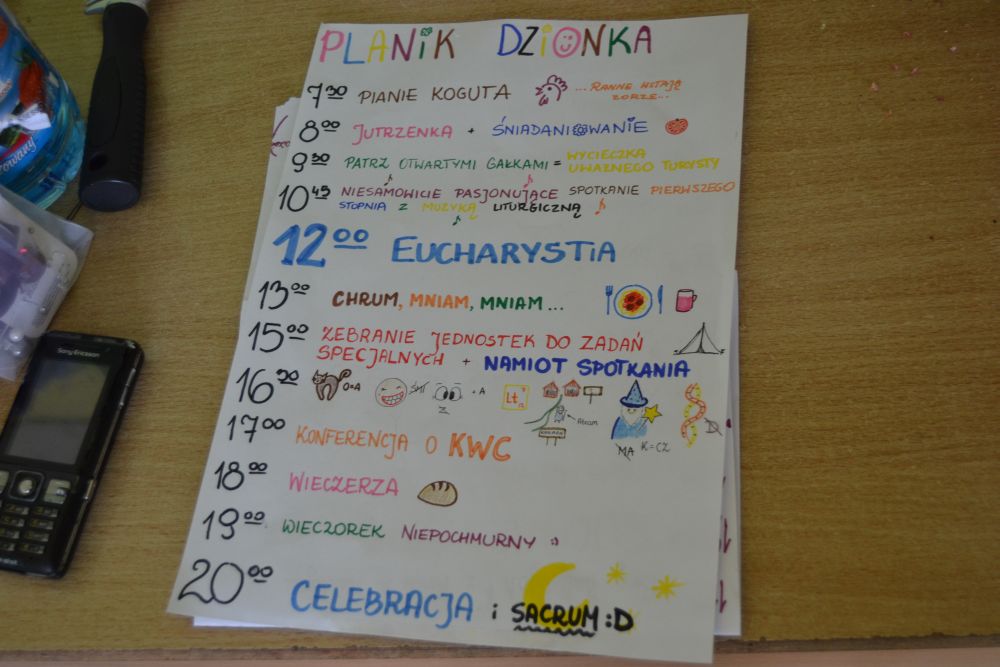 PLANIK DZIONKA
7³⁰ PIANIE KOGUTA ...RANNE WITAJĄ
ZORZE...
8⁰⁰ JUTRZENKA + ŚNIADANIOWANIE
9³⁰ PATRZ OTWARTYMI GAŁKAMI = WYCIECZKA
UWAŻNEGO TURYSTY
10⁴⁵ NIESAMOWICIE PASJONUJĄCE SPOTKANIE PIERWSZEGO
STOPNIA Z MUZYKĄ LITURGICZNĄ
12⁰⁰ EUCHARYSTIA
13⁰⁰ CHRUM, MNIAM, MNIAM...
15⁰⁰ ZEBRANIE JEDNOSTEK DO ZADAŃ
SPECJALNYCH + NAMIOT SPOTKANIA
16³⁰ O=A + A Lt
Z Abram
MA K=CZ
17⁰⁰ KONFERENCJA O KWC
18⁰⁰ WIECZERZA
19⁰⁰ WIECZOREK NIEPOCHMURNY :)
20⁰⁰ CELEBRACJA i SACRUM :D
Sony Ericsson